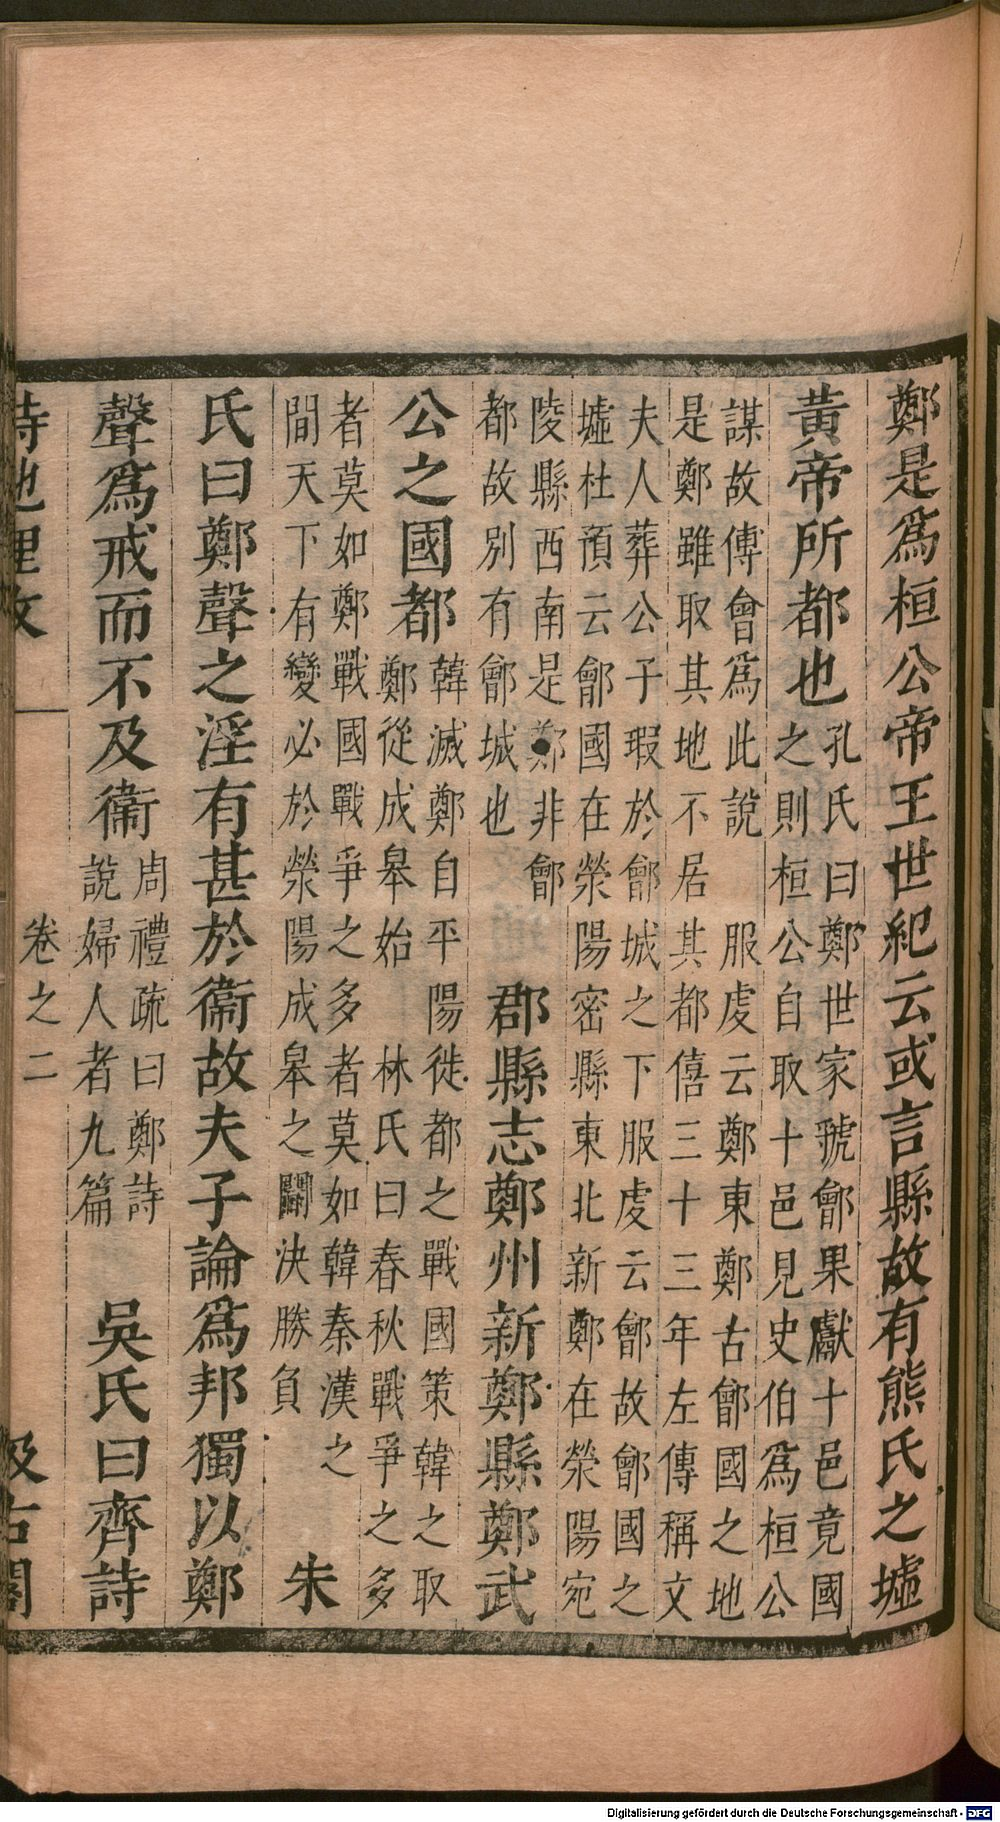 鄭是爲桓公帝王世紀云或言縣故有熊氏之墟
黃帝所都也
孔氏曰鄭世家虢鄶果獻十邑竟國
之則桓公自取十邑見史伯爲桓公
謀故傅會爲此說　服虔云鄭東鄭古鄶國之地
是鄭雖取其地不居其都僖三十三年左傳稱文
夫人葬公子瑕於鄶城之下服虔云鄶故鄶國之
墟杜預云鄶國在滎陽密縣東北新鄭在滎陽宛
陵縣西南是鄭非鄶
都故別有鄶城也
郡縣志鄭州新鄭縣鄭武
公之國都
韓滅鄭自平陽徙都之戰國策韓之取
鄭從成皋始　林氏曰春秋戰爭之多
者莫如鄭戰國戰爭之多者莫如韓秦漢之
間天下有變必於滎陽成皋之鬭決勝負
朱
氏曰鄭聲之淫有甚於衞故夫子論爲邦獨以鄭
聲爲戒而不及衞
周禮疏曰鄭詩
說婦人者九篇
吳氏曰齊詩
詩地理攷　卷之二　汲古閣
Digitalisierung gefördert durch die Deutsche Forschungsgemeinschaft - DFG